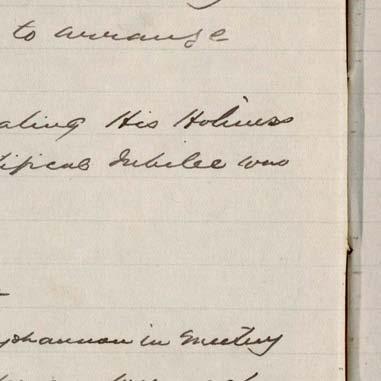 to arrange
ating His Holiness
tifical Jubilee was
in meeting